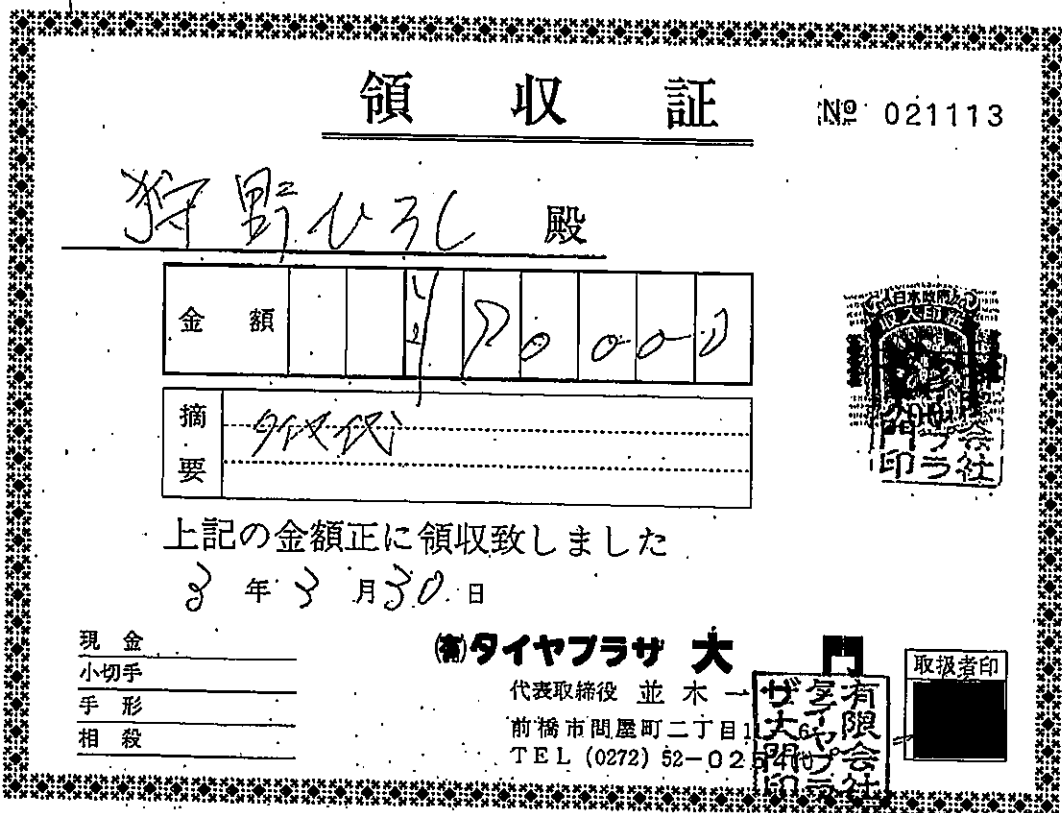 領収証
№ 021113
狩野ひろし 殿
金額 ¥70000
摘要 タイヤ代
上記の金額正に領収致しました
3年3月30日
現金
小切手
手形
相殺
(有)タイヤプラザ 大門
代表取締役 並木一
前橋市問屋町二丁目
TEL (0272) 52-02
取扱者印
有限会社タイヤプラザ大門印